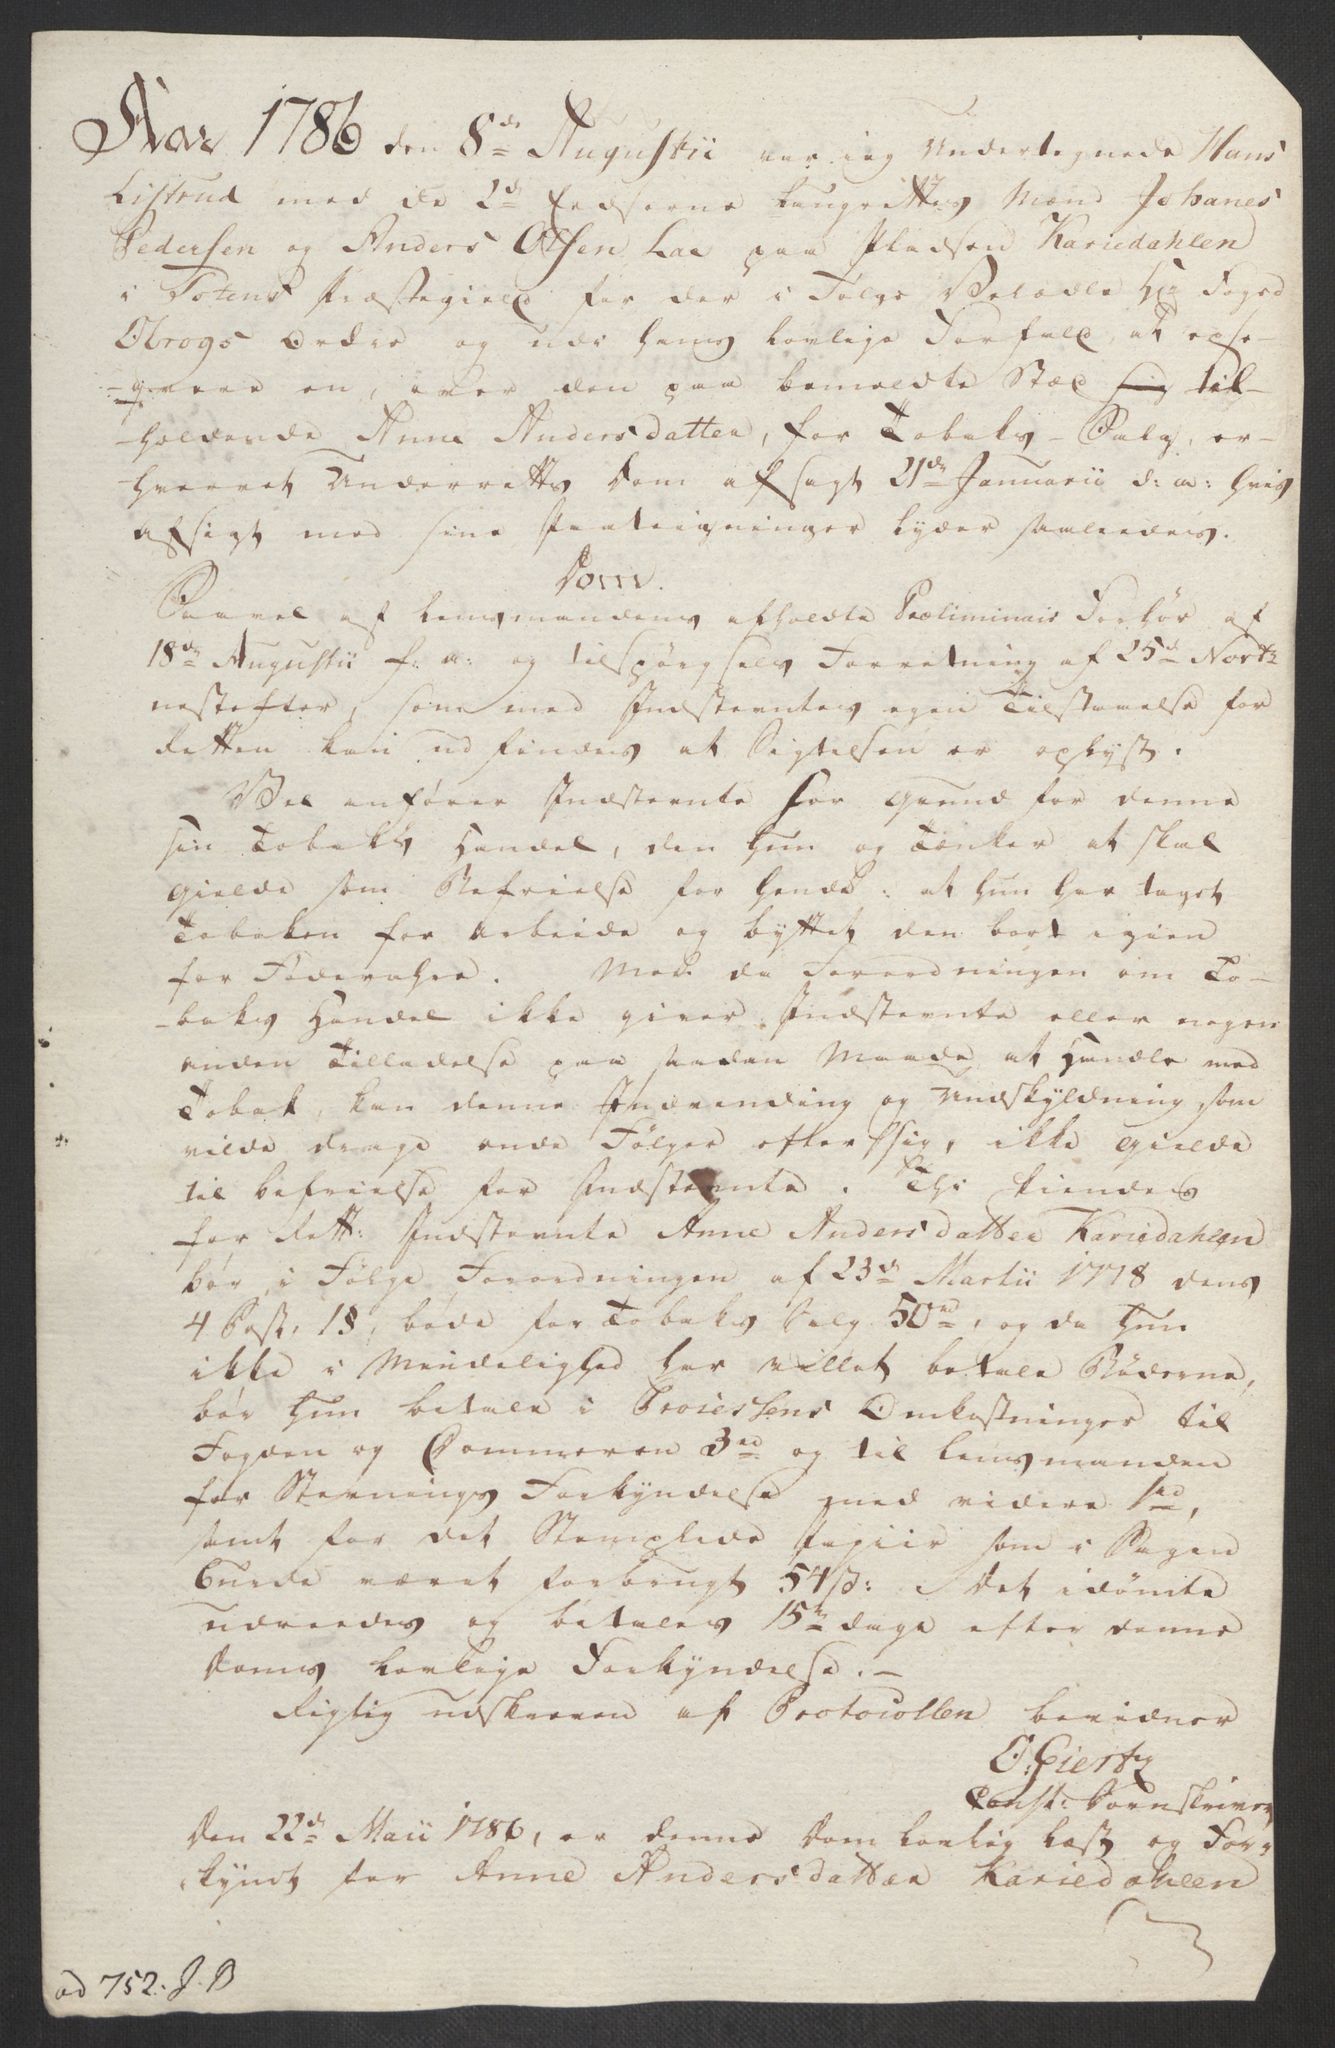 Aar 1786 den 8de Augustii var ieg Undertegnede Hans
Listrud med de 2de Eedsorne Laugrettes Mænd Johanes
Pedersen og Anders Olsen Laa paa Pladsen Kariedahlen
i Totens Præstegield for der i Følge Velædle Hr Foged
Obrogs Ordre og udi hans lovlige Forfald, at exse-
-qvere en, over den paa bemeldte Stæd sig til-
-holdende Anne Andersdatter, for Tobaks-Salg, er-
-hvervet Underretts Dom afsagt 21de Januarii d: a: hvis
afsigt med sine Paateigninger lyder saaledes.
Dom.
Saavel af Lensmandens afholdte Præliminair Forhör af
18de Augustii f: a: og tilspörgsels Forretning af 25de Novbr
nestefter, som med Indstevntes egen Tilstaaelse for
Retten kan udfindes at Sigtelsen er oplyst.
Vel anförer Indstevnte for grund for denne
sin Tobaks Handel, den hun og tænker at skal
gielde som Befrielse for hende: at hun har taget
Tobaken for arbeide og byttet den bort igien
for Födevahre. Men da Forordningen om To-
-baks Handel ikke giver Indstevnte eller nogen
anden Tilladelse paa saadan Maade at Handle med
Tobak, kan denne Indvending og Undskyldning, som
vilde drage onde Fölger efter sig, ikke gielde
til befrielse for Indstevnte. Thi kiendes
for Rett: Indstevnte Anne Andersdatter Kariedahlen
bör, i Fölge Forordningen af 23de Martii 1778 dens
4 Post, 1§, böde for Tobaks Salg 50rd, og da hun
ikke i Mindelighed har villet betale Böderne,
bör hun betale i Processens Omkostninger til
Fogden og Dommeren 3rd og til Lensmanden
for Stevnings Forkyndelse med videre 1rd,
samt for det Stemplede Papiir som i Sagen
burde været forbrugt 54 s: Det idömte
udreedes og betales 15ten dage efter denne
Doms lovlige Forkyndelse.-
Rigtig udskreven af Protocollen bevidner
O: Giertz
Const: Sorenskriver
Den 22de Maii 1786, er denne Dom lovlig læst og For-
kyndt for Anne Andersdatter Kariedahlen
ad 752. J. B